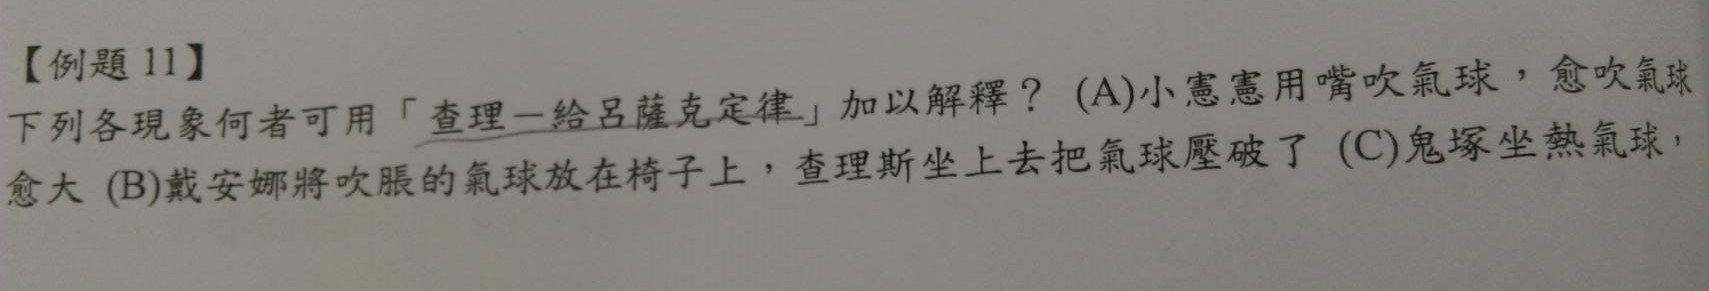 【例題 11】
下列各現象何者可用「查理－給呂薩克定律」加以解釋？ (A)小憲憲用嘴吹氣球，愈吹氣球
愈大 (B)戴安娜將吹脹的氣球放在椅子上，查理斯坐上去把氣球壓破了 (C)鬼塚坐熱氣球，